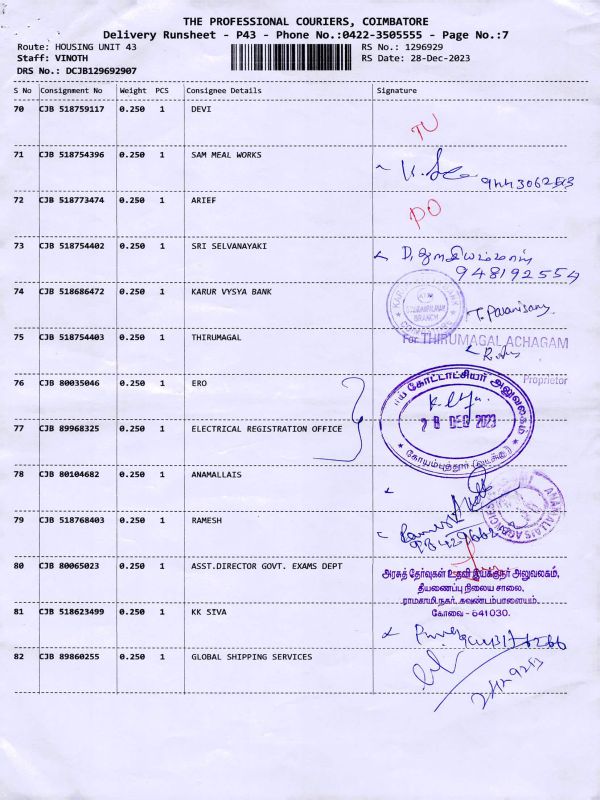 THE PROFESSIONAL COURIERS, COIMBATORE
Delivery Runsheet - P43 - Phone No.:0422-3505555 - Page No.:7
Route: HOUSING UNIT 43 RS No.: 1296929
Staff: VINOTH RS Date: 28-Dec-2023
DRS No.: DCJB129692907
S No Consignment No Weight PCS Consignee Details Signature
70 CJB 518759117 0.250 1 DEVI
71 CJB 518754396 0.250 1 SAM MEAL WORKS
72 CJB 518773474 0.250 1 ARIEF
73 CJB 518754402 0.250 1 SRI SELVANAYAKI
948192554
74 CJB 518686472 0.250 1 KARUR VYSYA BANK
75 CJB 518754403 0.250 1 THIRUMAGAL For THIRUMAGAL ACHAGAM
Proprietor
76 CJB 80035046 0.250 1 ERO
கோட்டாட்சியர் அலுவலகம்
28 DEC 2023
77 CJB 89968325 0.250 1 ELECTRICAL REGISTRATION OFFICE
கோயம்புத்தூர் (வடக்கு)
78 CJB 80104682 0.250 1 ANAMALLAIS
79 CJB 518768403 0.250 1 RAMESH
80 CJB 80065023 0.250 1 ASST.DIRECTOR GOVT. EXAMS DEPT
அரசுத் தேர்வுகள் உதவி இயக்குநர் அலுவலகம்,
தீயணைப்பு நிலைய சாலை,
ராமசாமி நகர், கவுண்டம்பாளையம்,
கோவை - 641030.
81 CJB 518623499 0.250 1 KK SIVA
82 CJB 89860255 0.250 1 GLOBAL SHIPPING SERVICES